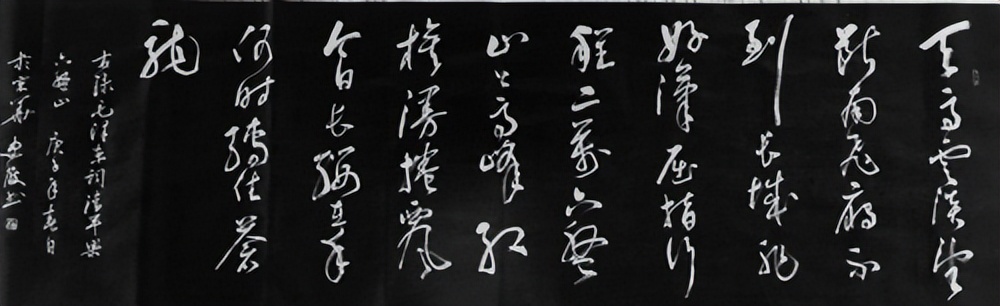 天高云淡望
断南飞雁不
到长城非
好漢屈指行
程二萬六盤
山上高峰红
旗漫捲西风
今日长缨在手
何时缚住苍
龍
右录毛泽东词清平乐
六盤山 庚子年春日
於京华